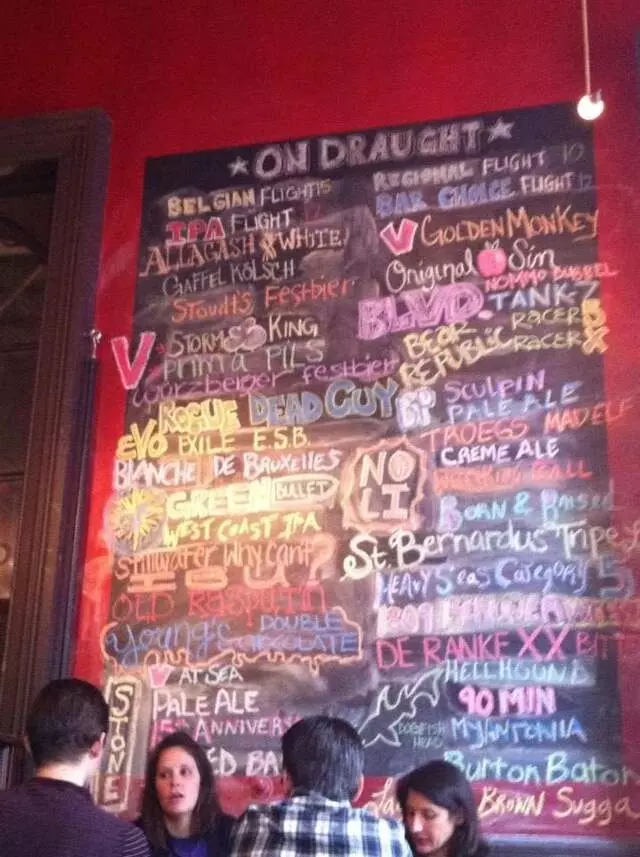 ON DRAUGHT
BELGIAN FLIGHT 15
IPA FLIGHT 12
ALLAGASH WHITE
GAFFEL KÖLSCH
STOUDTS FESTBIER
STORM KING
V PRIMA PILS
Würzberger festbier
ROGUE DEAD GUY
EVO EXILE E.S.B.
BLANCHE DE BRUXELLES
GREEN BULLET
WEST COAST IPA
Stillwater Why Can't
I B U ?
OLD RASPUTIN
Young's DOUBLE
CHOCOLATE
V AT SEA
STONE
PALE ALE
15th ANNIVERS
ED BA
REGIONAL FLIGHT 10
BAR CHOICE FLIGHT 12
V GOLDEN MONKEY
Original Sin
NOMMO DUBBEL
BLVD. TANK 7
BEAR REPUBLIC
RACER 5
RACER X
BP SCULPIN
PALE ALE
TROEGS MAD ELF
NO
LI
CREME ALE
WRECKING BALL
BORN & RAISED
St. Bernardus Tripe
HEAVY SEAS CATEGORY 5
DE RANKE XX BITT
DOGFISH
HEAD
HELLHOUND
90 MIN
MY ANTONIA
Burton Baton
BROWN Sugga